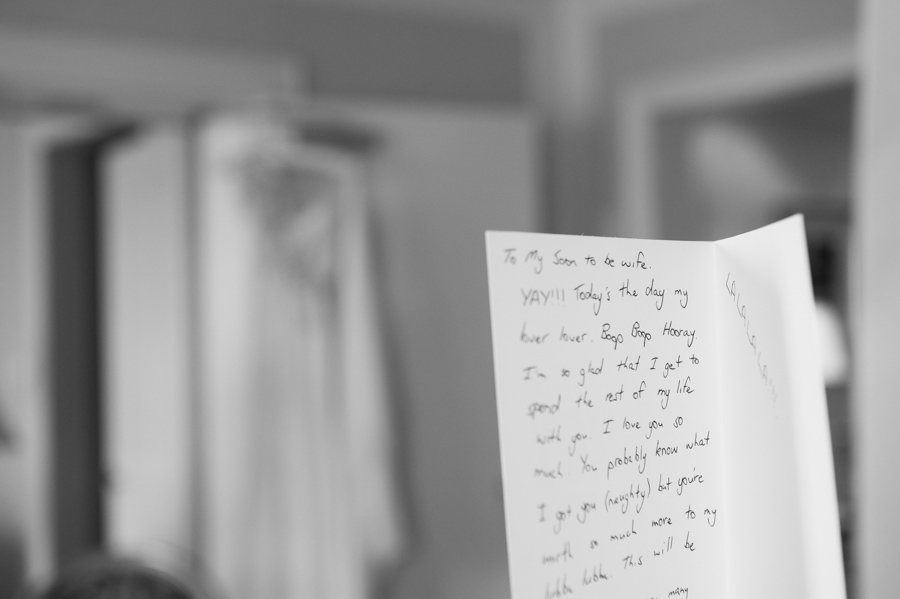 To My Soon to be wife.
YAY!!! Today's the day my
lover lover. Boop Boop Hooray.
I'm so glad that I get to
spend the rest of my life
with you. I love you so
much. You probably know what
I got you (naughty) but you're
worth so much more to my
lubba lubba. This will be
many
LA LA LA LA